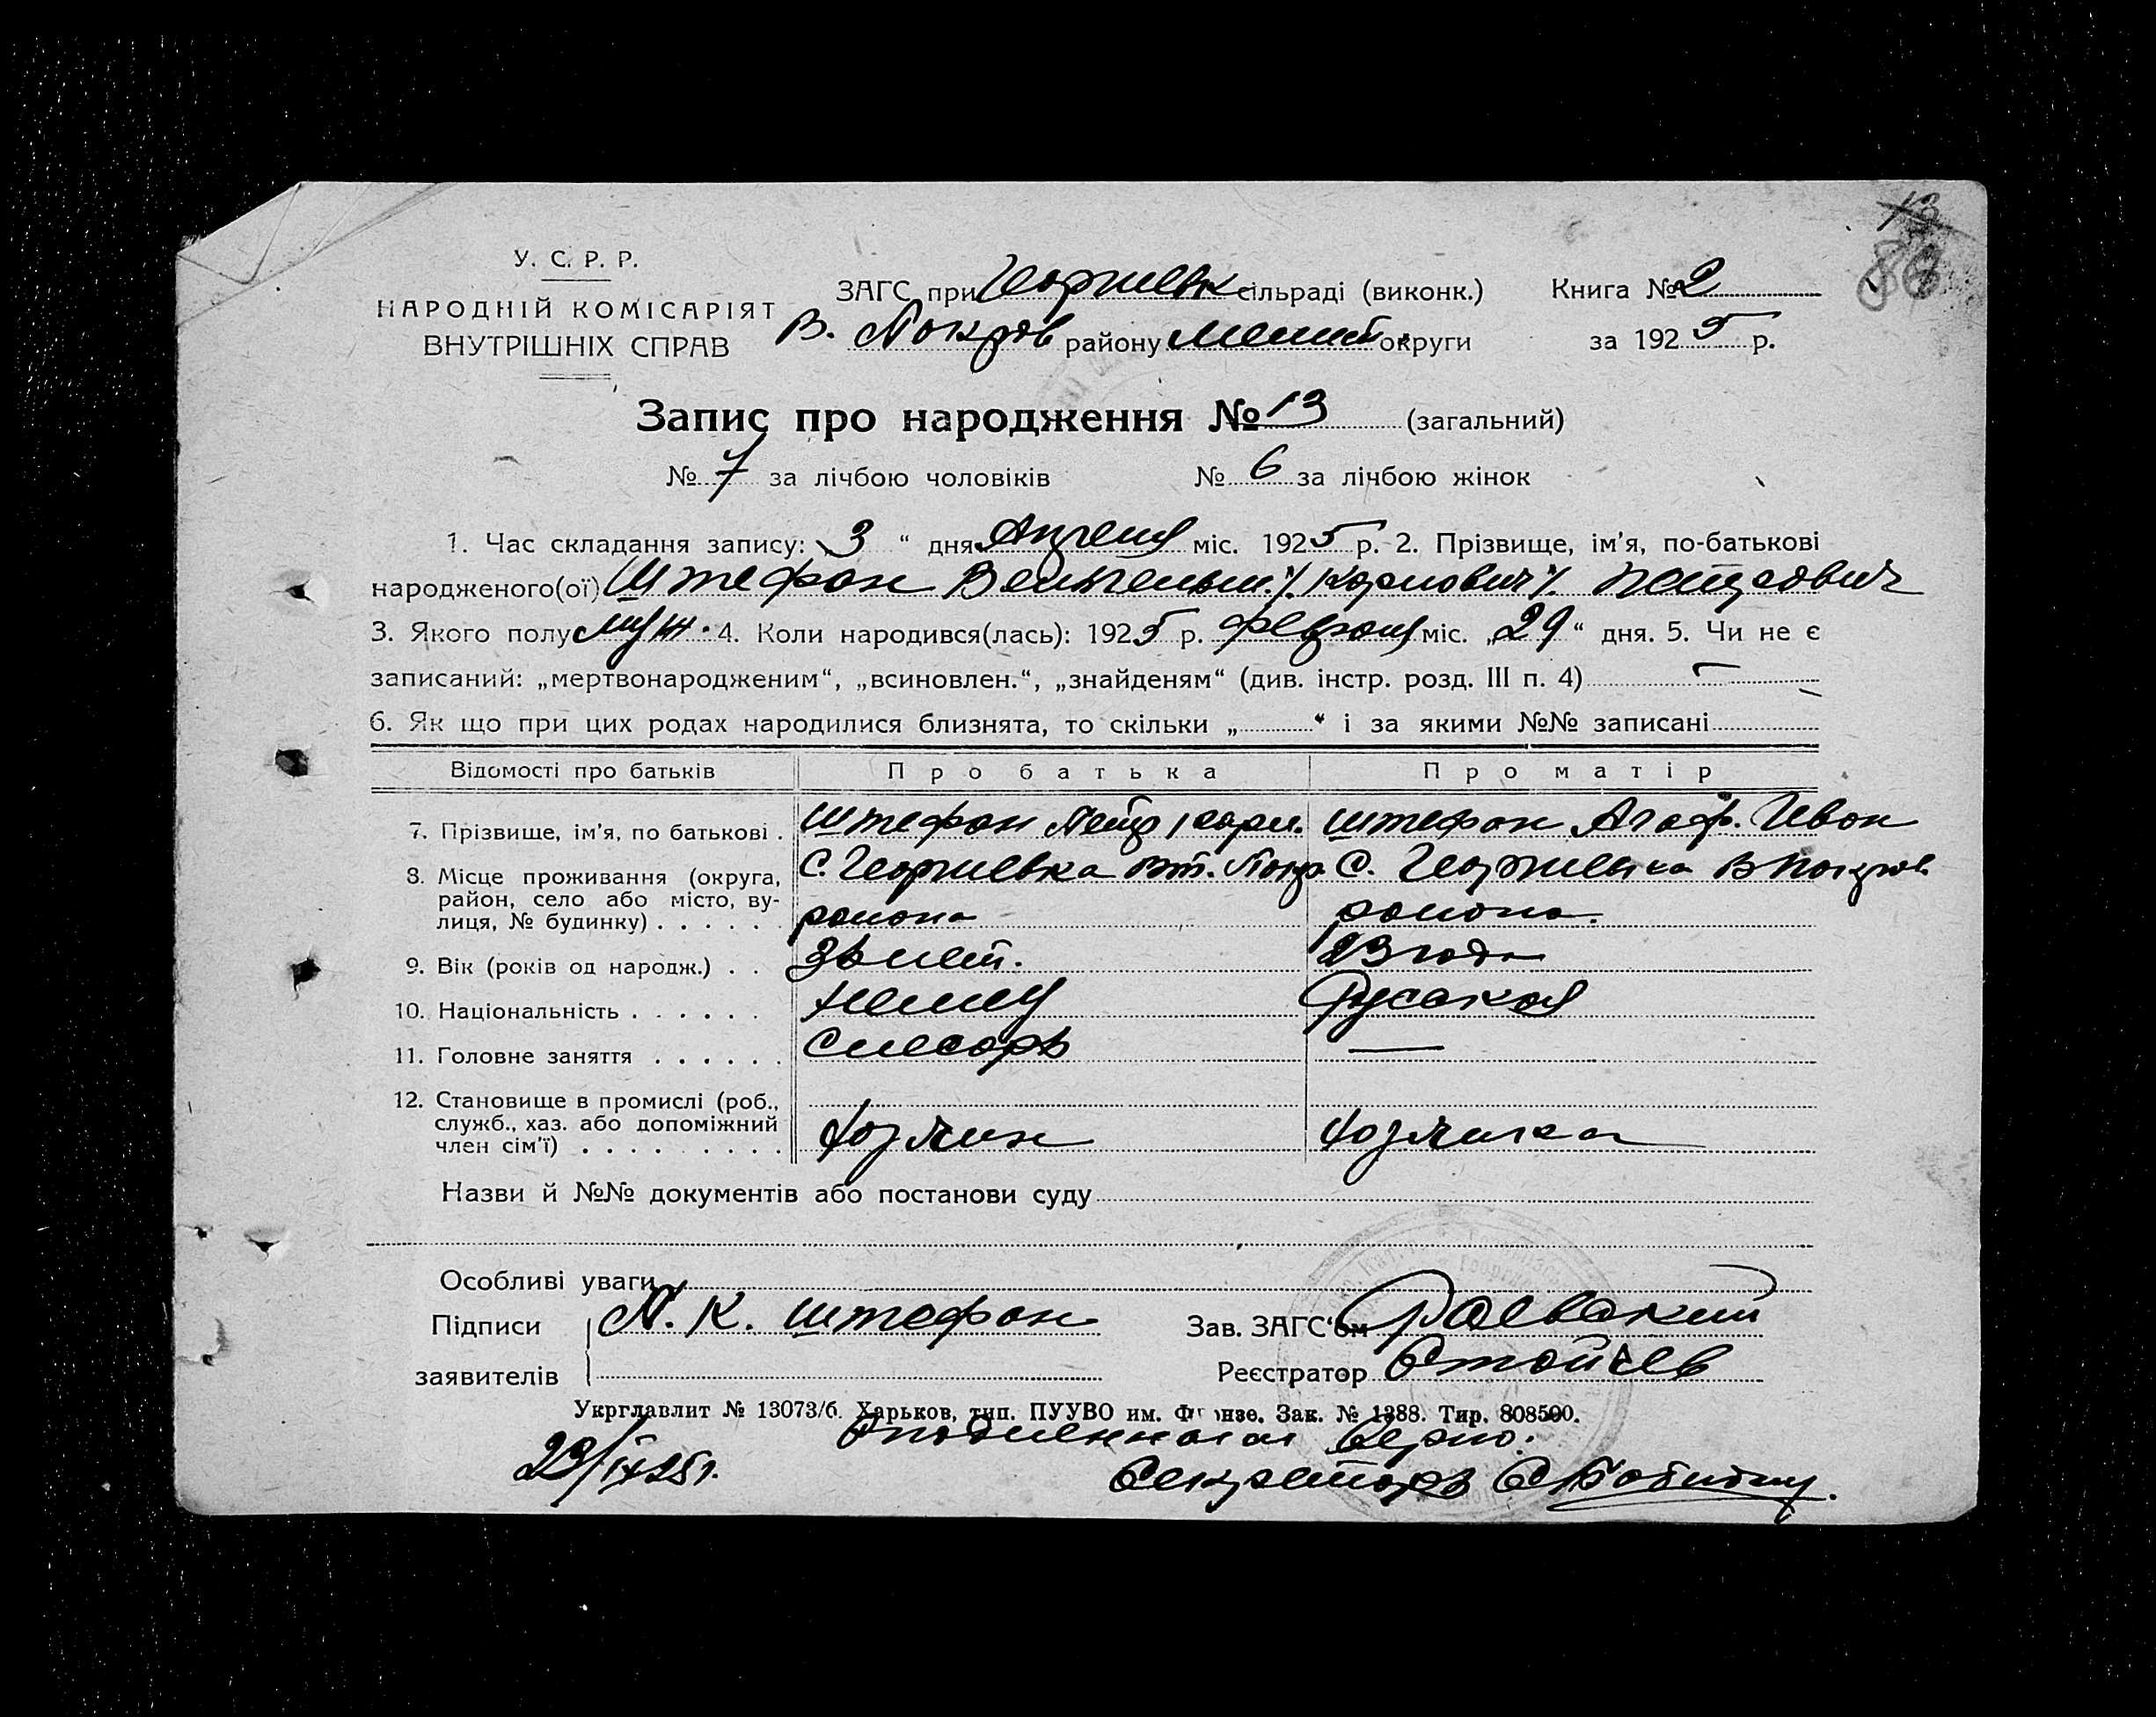 13
У. С. Р. Р.
НАРОДНІЙ КОМІСАРІЯТ
ВНУТРІШНІХ СПРАВ
ЗАГС при Георгиевск сільраді (виконк.)
В. Покров району Мелит округи
Книга № 2
за 1925 р.
Запис про народження № 13 (загальний)
№ 7 за лічбою чоловіків № 6 за лічбою жінок
1. Час складання запису: „3“ дня Апреля міс. 1925 р. 2. Прізвище, ім’я, по-батькові
народженого(ої) Штефан Вильгельм Карлович Петрович
3. Якого полу муж. 4. Коли народився(лась): 1925 р. Февраля міс. „29“ дня. 5. Чи не є
записаний: „мертвонародженим“, „всиновлен.“, „знайденям“ (див. інстр. розд. III п. 4)
6. Як що при цих родах народилися близнята, то скільки „ “ і за якими №№ записані
Відомості про батьків Про батька Про матір
7. Прізвище, ім’я, по батькові . Штефан Петр Карл. Штефан Агаф. Иван
8. Місце проживання (округа, район, село або місто, вулиця, № будинку) . . . . . . С. Георгиевка Вт. Покр. района С. Георгиевка В Покров. района.
9. Вік (років од народж.) . . лет. 23 года
10. Національність . . . . . . Немец Русская
11. Головне заняття . . . . . . Слесарь —
12. Становище в промислі (роб., служб., хаз. або допоміжний член сім’ї) . . . . . . . . . Хозяин Хозяйка
Назви й №№ документів або постанови суду
Особливі уваги
Підписи П. К. Штефан Зав. ЗАГС‘ом Раевский
заявителів Реєстратор Стойчев
Укрглавлит № 13073/б. Харьков, тип. ПУУВО им. Фрунзе. Зак. № 1388. Тир. 808500.
С подлинным верно:
29/IX 25 г. Секретарь